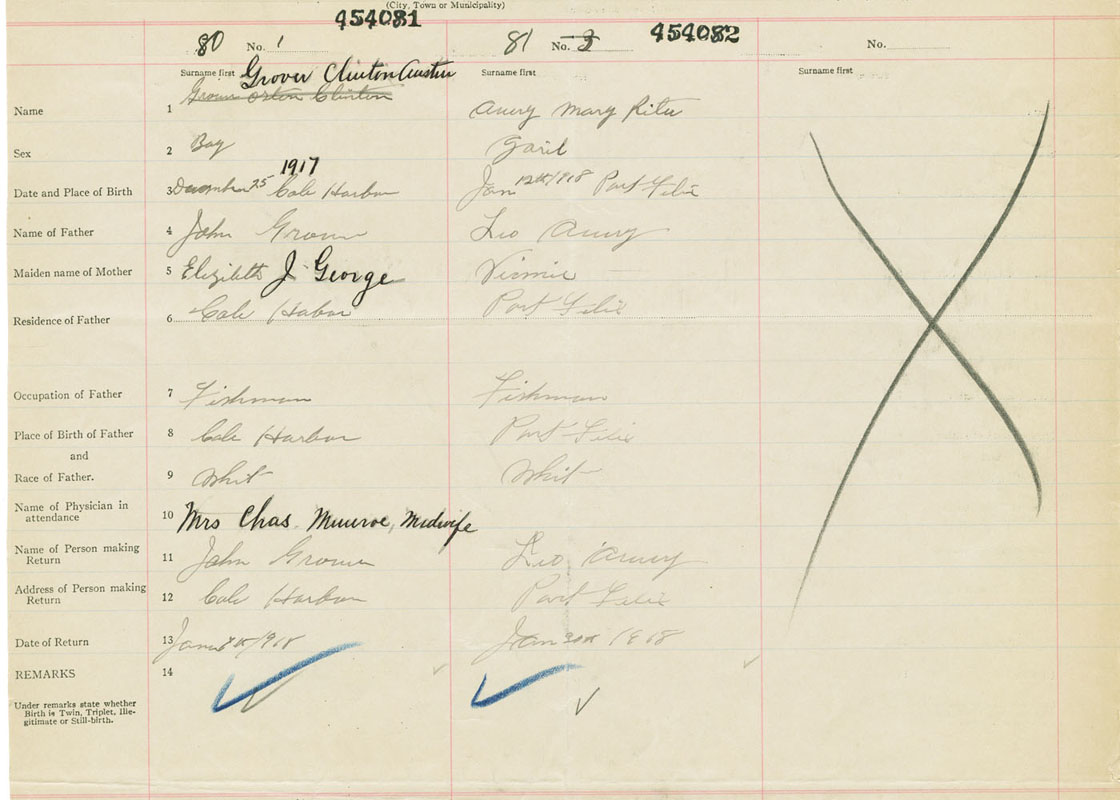 (City, Town or Municipality)
454081
80 No. 1
81 No. 3
454082
No.
Surname first Grover Clinton Austin
Surname first
Surname first
Name 1 Grover Orten Clinton
Avery Mary Rita
Sex 2 Boy
Garil
1917
Date and Place of Birth 3 December 25 Cole Harbor
Jan 12th/1918 Port Felix
Name of Father 4 John Grover
Leo Avery
Maiden name of Mother 5 Elizabeth J George
Residence of Father 6 Cole Habor
Port Felix
Occupation of Father 7 Fishman
Fishman
Place of Birth of Father 8 Cole Harbor
Port Felix
and
Race of Father. 9 Whit
Whit
Name of Physician in
attendance 10 Mrs Chas. Munroe, Midwife
Name of Person making
Return 11 John Grover
Leo Avery
Address of Person making
Return 12 Cole Harbor
Port Felix
Date of Return 13 Jan 8th/1918
Jan 30th 1918
REMARKS 14
Under remarks state whether
Birth is Twin, Triplet, Ille-
gitimate or Still-birth.